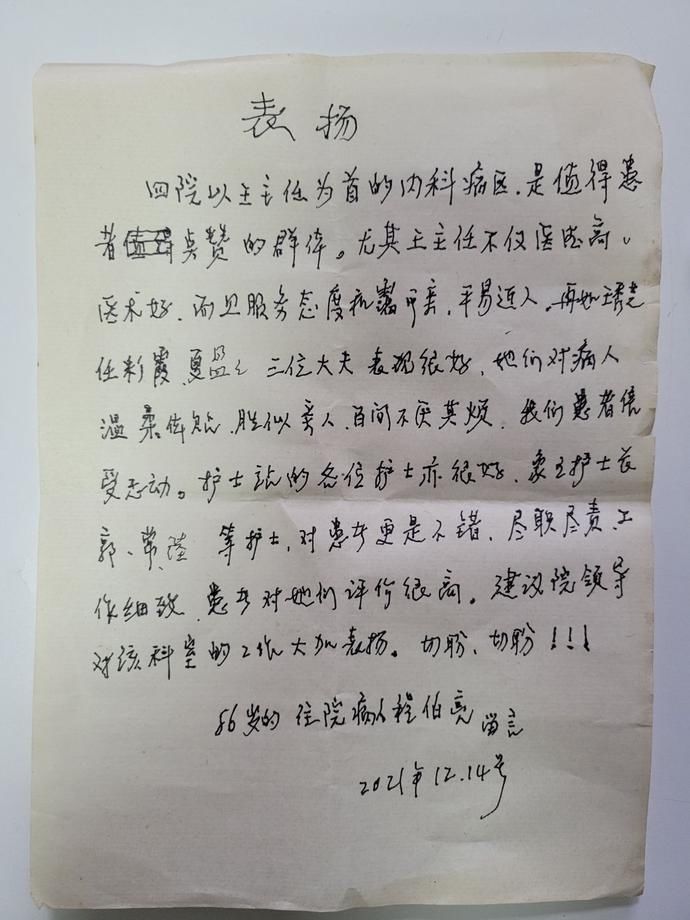 表扬
四院以王主任为首的内科病区,是值得患
者点赞的群体。尤其王主任不仅医德高、
医术好,而且服务态度和蔼可亲,平易近人。再如
任彩霞、夏 三位大夫表现很好,她们对病人
温柔体贴,胜似亲人,百问不厌其烦,我们患者倍
受感动。护士站的各位护士亦很好,象王护士长
郭、常、陆 等护士,对患者更是不错,尽职尽责,工
作细致,患者对她们评价很高。建议院领导
对该科室的工作大加表扬。切盼、切盼!!!
86岁的住院病人程伯亮留言
2021年12.14号